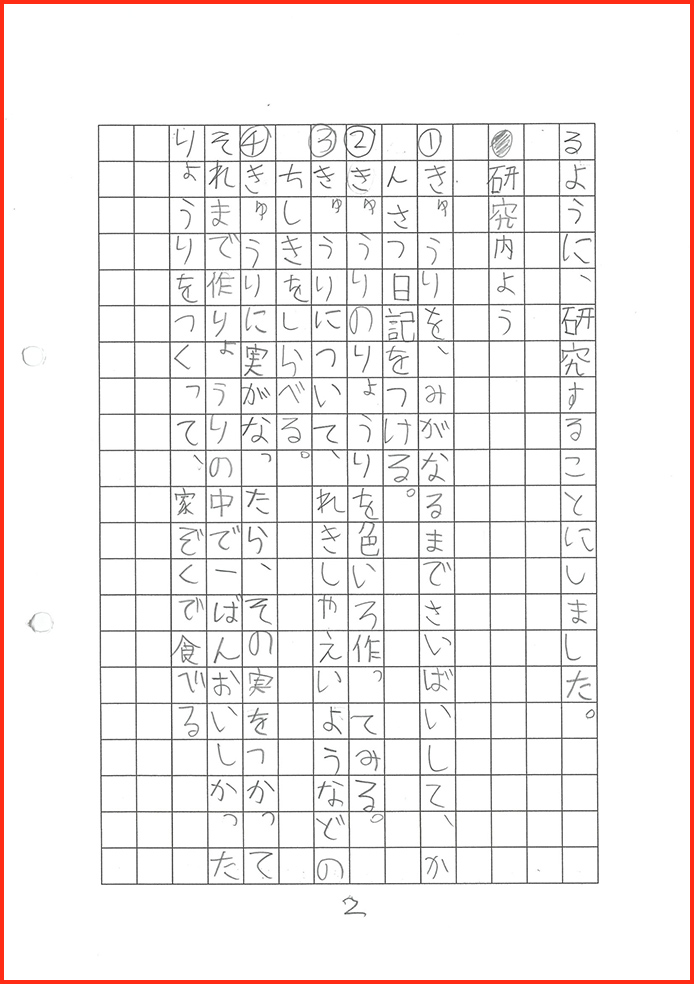 るように、研究することにしました。
●研究内よう
①きゅうりを、みがなるまでさいばいして、か
んさつ日記をつける。
②きゅうりのりょうりを色いろ作ってみる。
③きゅうりについて、れきしやえいようなどの
ちしきをしらべる。
④きゅうりに実がなったら、その実をつかって
それまで作りょうりの中で一ばんおいしかった
りょうりをつくって、家ぞくで食でる
2